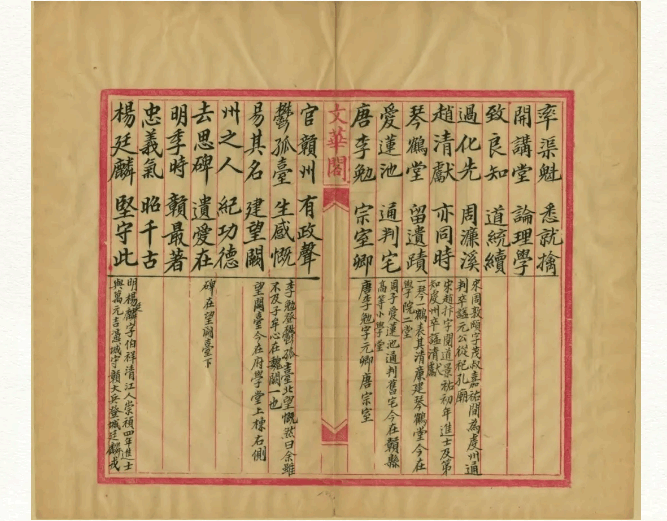 率渠魁 悉就擒
開講堂 論理學
致良知 道統續
過化先 周濂溪
宋周敦頤字茂叔嘉祐間為虔州通
判卒謚元公從祀孔廟
趙清獻 亦同時
宋趙抃字閱道景祐初年進士及第
知虔州卒謚清獻
琴鶴堂 留遺蹟
琴一鶴表其清廉建琴鶴堂今在
學院二堂
愛蓮池 通判宅
周子愛蓮池通判舊宅今在贛縣
高等小學堂
唐李勉 宗室卿
唐李勉字元卿唐宗室
文華閣
官贛州 有政聲
鬱孤臺 生感慨
李勉登鬱孤臺北望慨然曰余雖
不及子牟心在魏闕一也
易其名 建望闕
望闕臺今在府學堂上棟右側
州之人 紀功德
去思碑 遺愛在
碑在望闕臺下
明季時 贛最著
忠義氣 昭千古
楊廷麟 堅守此
明楊廷麟字伯祥清江人崇禎四年進士
與萬元吉憑城守贛大兵登城廷麟戎